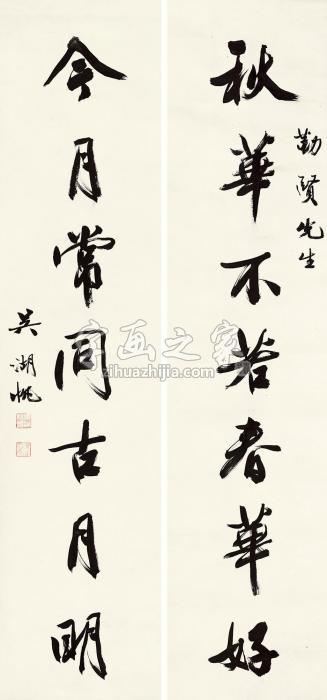 勤賢先生
秋華不若春華好
今月常同古月明
吴湖帆
字画之家
zihuazhijia.com